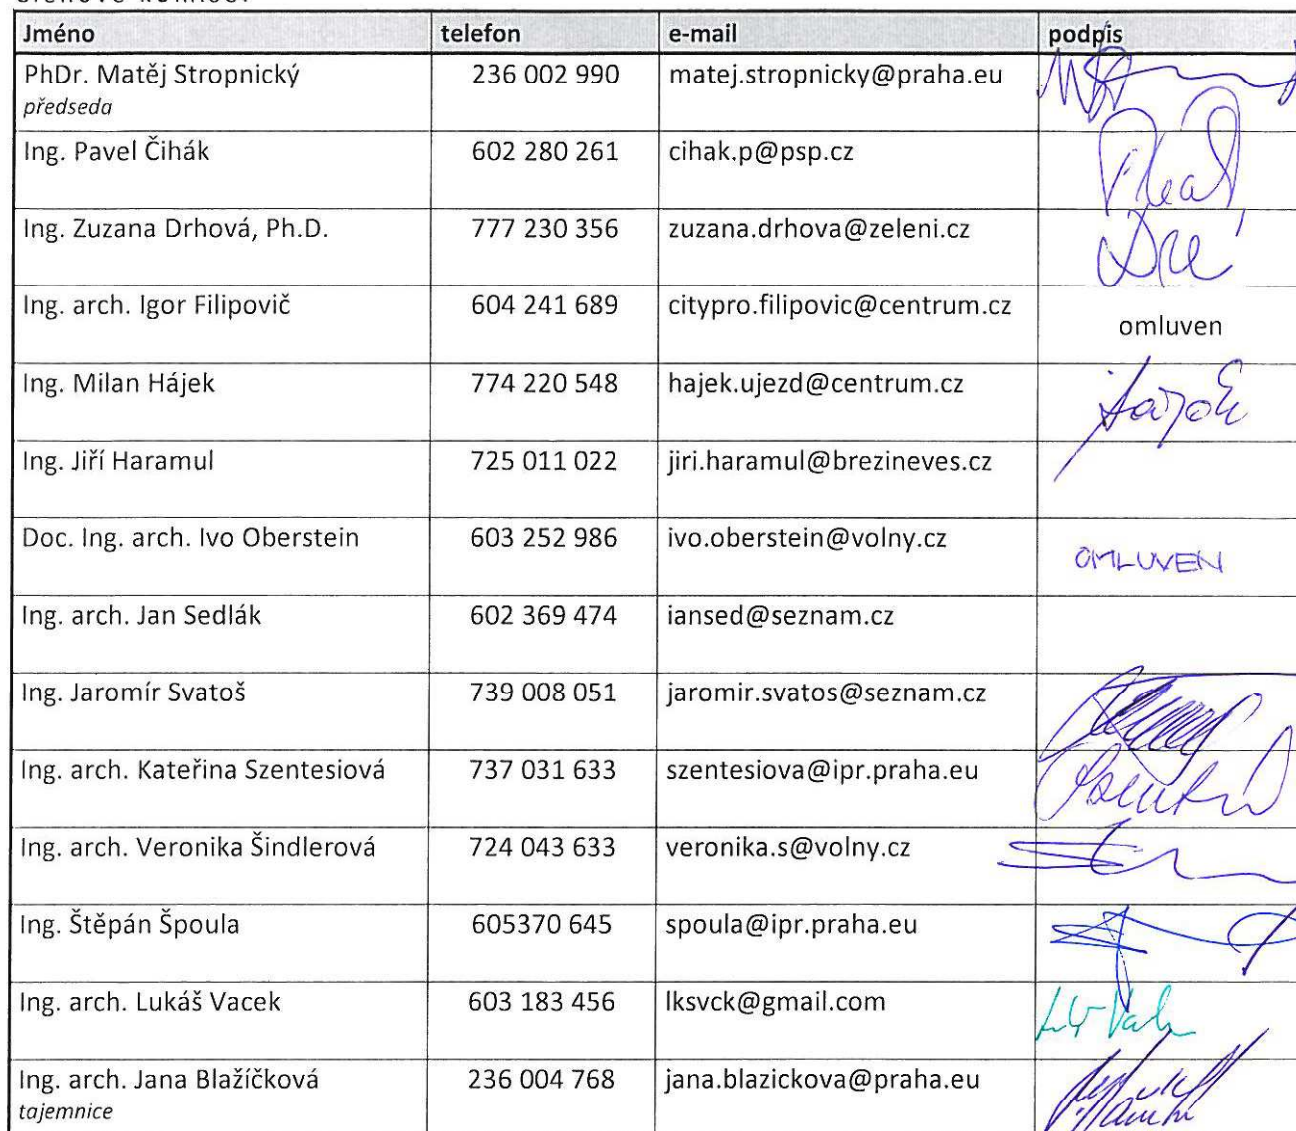 Jméno telefon e-mail podpis
PhDr. Matěj Stropnický 236 002 990 matej.stropnicky@praha.eu
předseda
Ing. Pavel Čihák 602 280 261 cihak.p@psp.cz
Ing. Zuzana Drhová, Ph.D. 777 230 356 zuzana.drhova@zeleni.cz
Ing. arch. Igor Filipovič 604 241 689 citypro.filipovic@centrum.cz omluven
Ing. Milan Hájek 774 220 548 hajek.ujezd@centrum.cz
Ing. Jiří Haramul 725 011 022 jiri.haramul@brezineves.cz
Doc. Ing. arch. Ivo Oberstein 603 252 986 ivo.oberstein@volny.cz OMLUVEN
Ing. arch. Jan Sedlák 602 369 474 iansed@seznam.cz
Ing. Jaromír Svatoš 739 008 051 jaromir.svatos@seznam.cz
Ing. arch. Kateřina Szentesiová 737 031 633 szentesiova@ipr.praha.eu
Ing. arch. Veronika Šindlerová 724 043 633 veronika.s@volny.cz
Ing. Štěpán Špoula 605370 645 spoula@ipr.praha.eu
Ing. arch. Lukáš Vacek 603 183 456 lksvck@gmail.com
Ing. arch. Jana Blažíčková 236 004 768 jana.blazickova@praha.eu
tajemnice